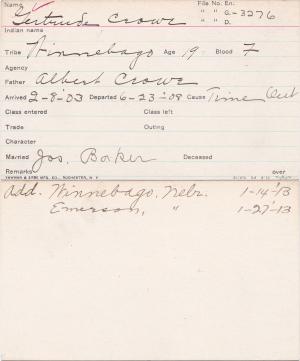 Name Gertrude Crowe File No. En.
" " G-3276
" " D.
Indian name
Tribe Winnebago Age 19 Blood F
Agency
Father Albert Crowe
Arrived 2-8-03 Departed 6-23-08 Cause Time Out
Class entered Class left
Trade Outing
Character
Married Jos. Baker Deceased
Remarks over
YAWMAN & ERBE MFG. CO., ROCHESTER, N. Y.
Add. Winnebago, Nebr. 1-14-13
Emerson, " 1-27-13